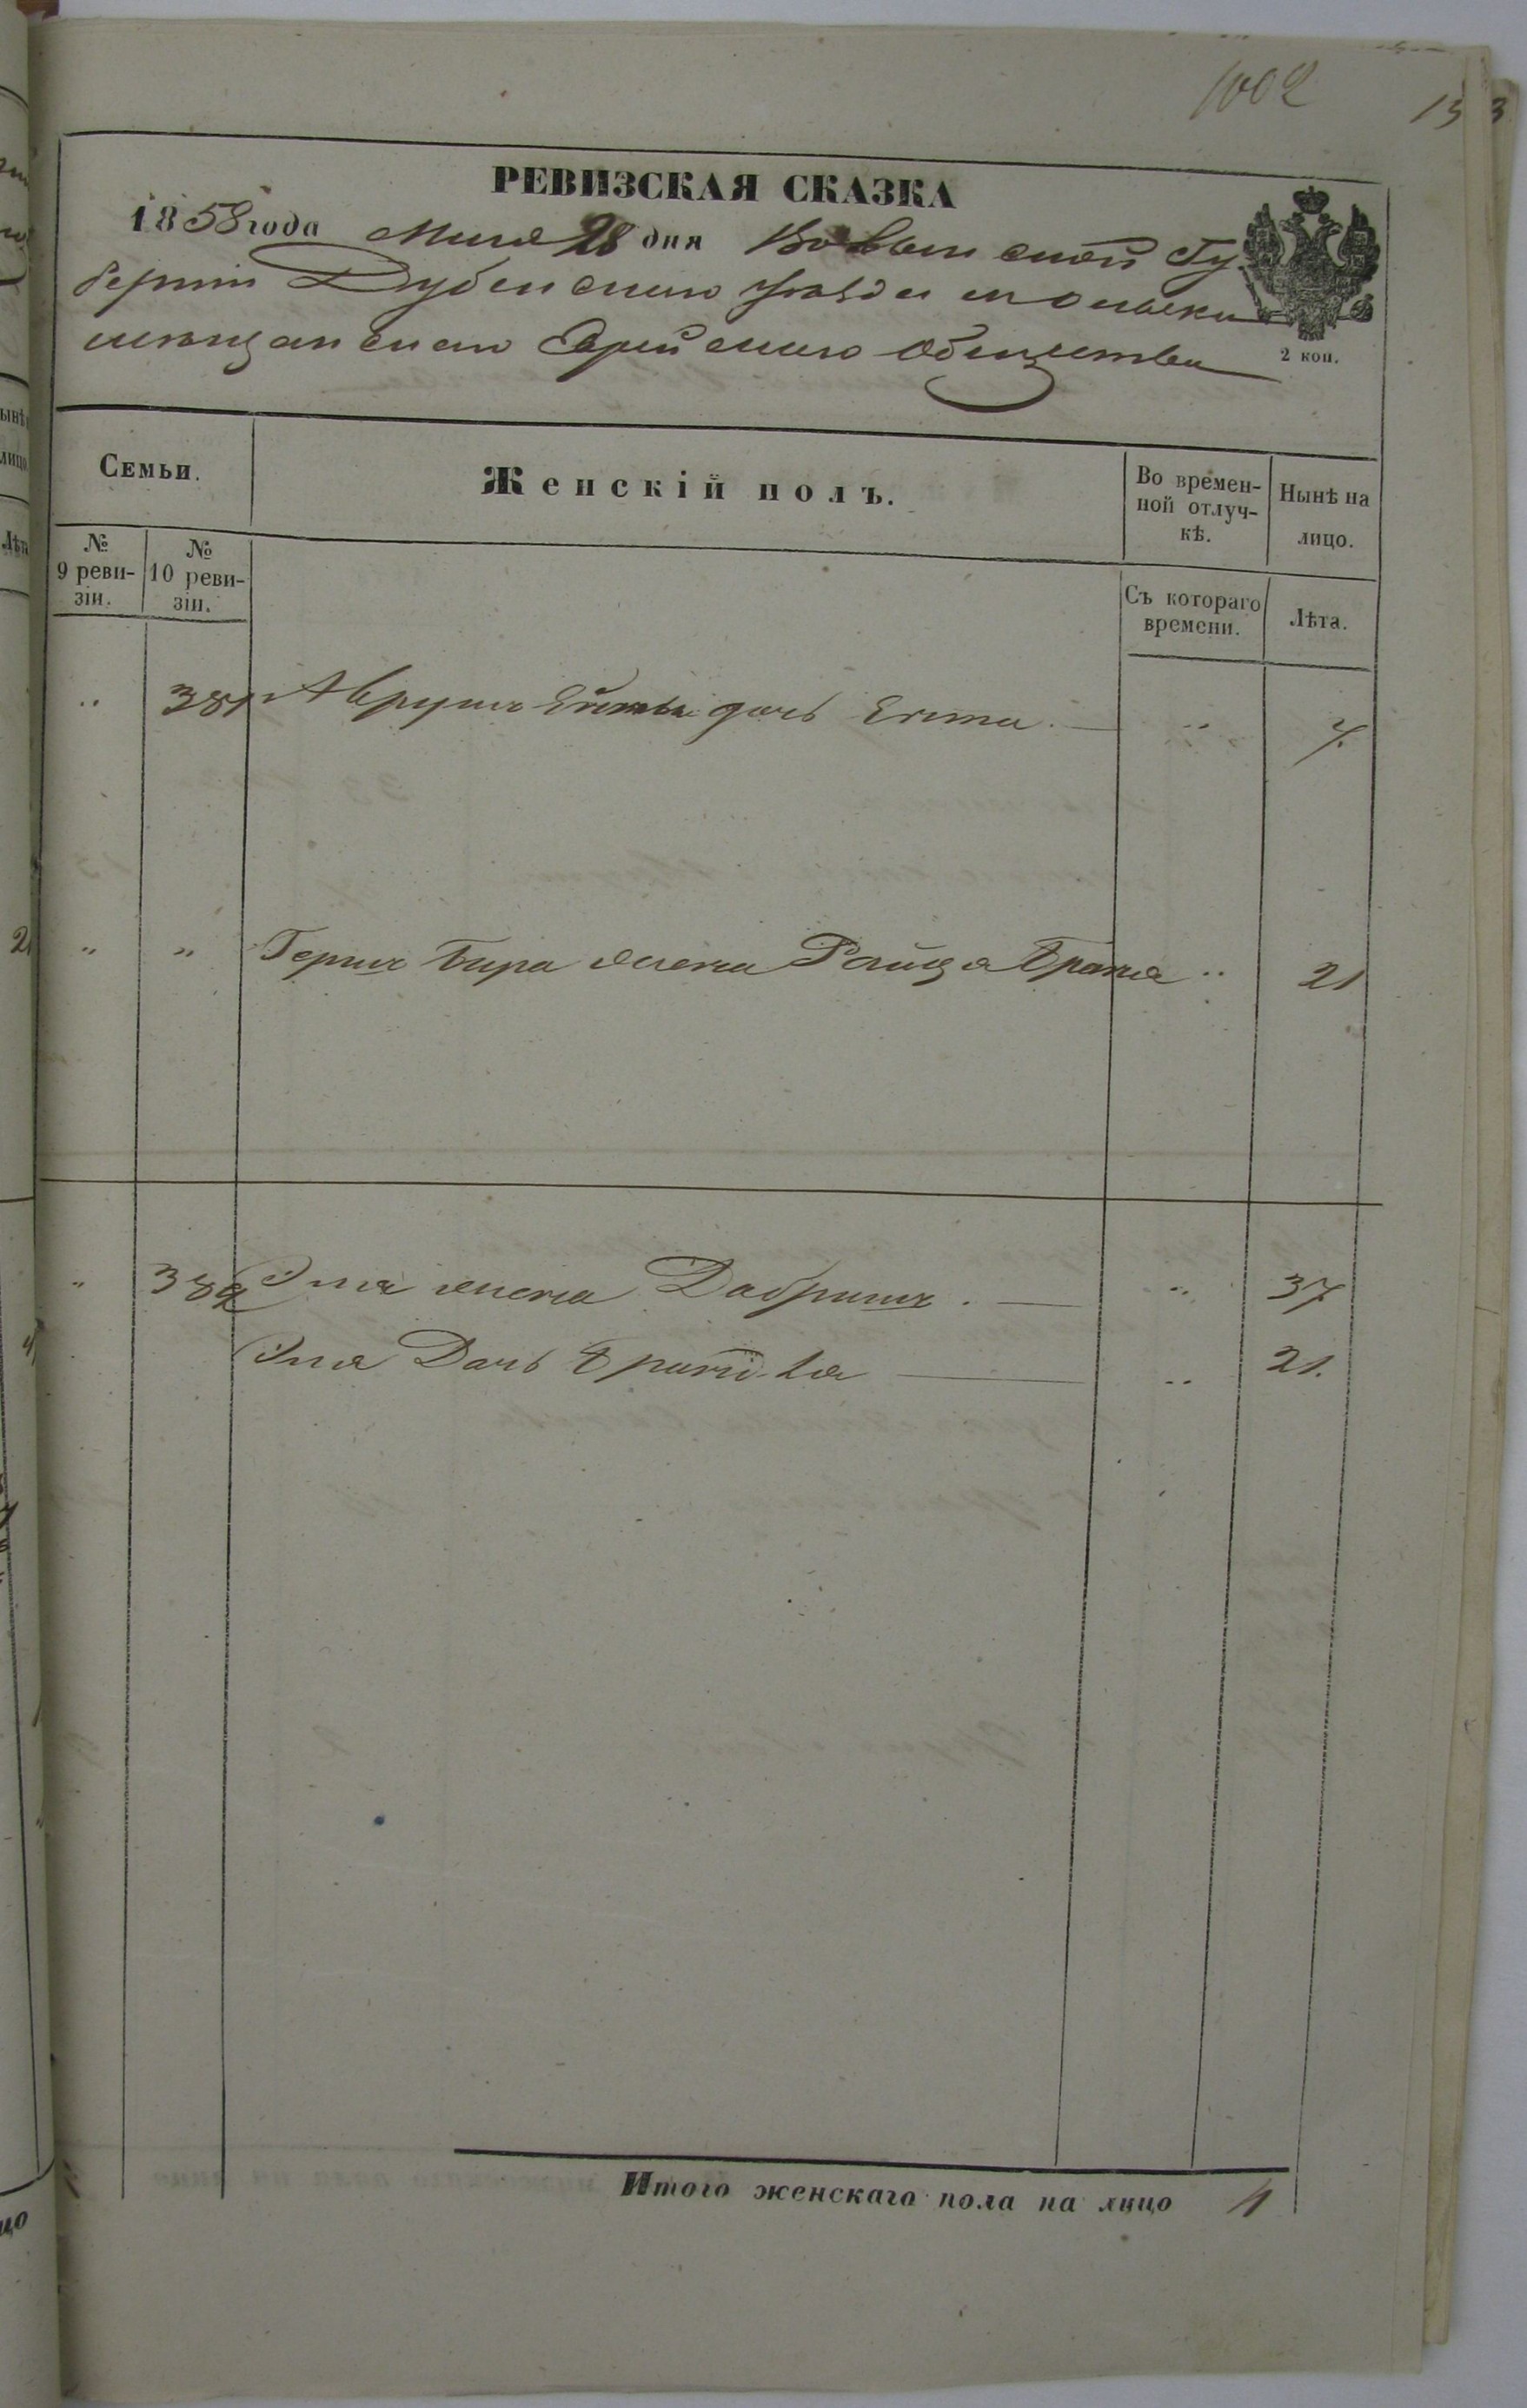 1002
РЕВИЗСКАЯ СКАЗКА
1858 года Маія 28 дня Волынской Гу
берніи Дубенскаго уѣзда
мещанскаго Еврейскаго Общества
2 коп.
Семьи.
Женскій полъ.
Во времен-
ной отлуч-
кѣ.
Нынѣ на
лицо.
№
9 реви-
зіи.
№
10 реви-
зіи.
Съ котораго
времени.
Лѣта.
" 381 Аврумъ дочь " 7.
" " Бера жена " 21
" 382 жена Добришъ . " 37
Дочь " 21.
Итого женскаго пола на лицо 4